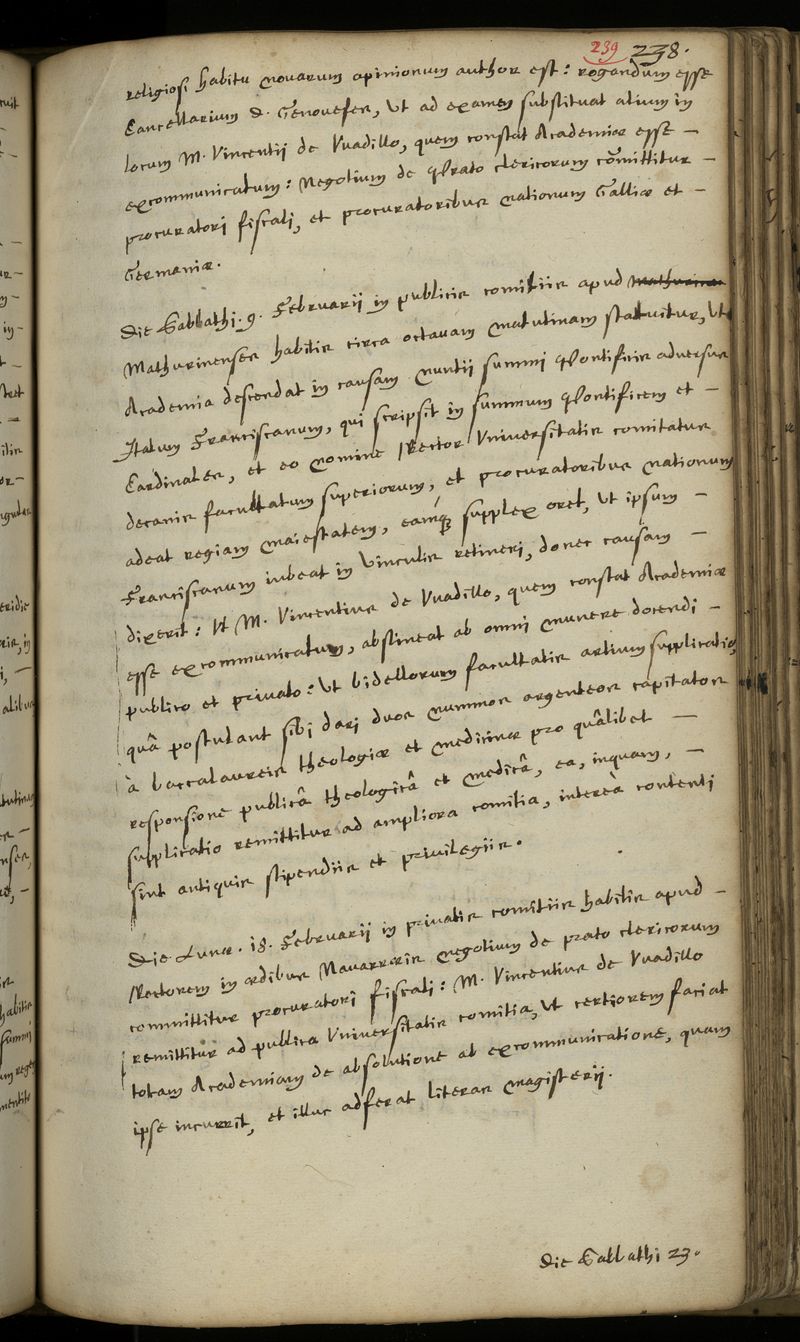 239 238.
religiosi habitu novarum opinionum author est: rogandum esse
Cancellarium S. Genovefes, Ut ad examen substituat alium in
locum M. Vincentij de Vuadillo, quem constat Academiæ esse –
excommunicatum: Negotium de Prato clericorum committitur –
procuratori fiscali, et procuratoribus nationum Galliæ et –
Germaniæ.
Die Sabbathi .9. Februarij in publicis comitiis apud
Mathurinenses habitis circa octavam matutinam statuitur, Ut
Academia descendat in causam nuntij summi Pontificis adversus
Italum Franciscanum, qui scripsit in summum Pontificem et –
Cardinales, et eo nomine Rector Universitatis comitatus
decanis facultatum superiorum, et procuratoribus nationum
adeat regiam maiestatem, eamq; supplex oret, Ut ipsum –
Franciscanum iubeat in vinculis retineri, donec causam –
dixerit: Ut M. Vincentius de Vuadillo, quem constat Academiæ
esse excommunicatum, abstineat ab omni munere docendi –
publico et privato: Ut bidellorum facultatis artium supplicatio,
quâ postulant sibi dari duos nummos argenteos capitatos
à baccalaureis theologiæ et medicinæ pro quâlibet –
responsione publicâ theologicâ et medicâ, ea, inquam, –
supplicatio remittitur ad ampliora comitia, intereà contenti
sint antiquis stipendiis et privilegiis.
Die Lunæ .18. Februarij in privatis comitiis habitis apud –
Rectorem in ædibus Navarricis negotium de prato clericorum
committitur procuratori fiscali: M. Vincentius de Vuadillo
remittitur ad publica Universitatis comitia, Ut certiorem faciat
totam Academiam de absolutione ab excommunicatione, quam
ipse incurrit, et illuc adferat literas magisterij.
Die Sabbathi 23.